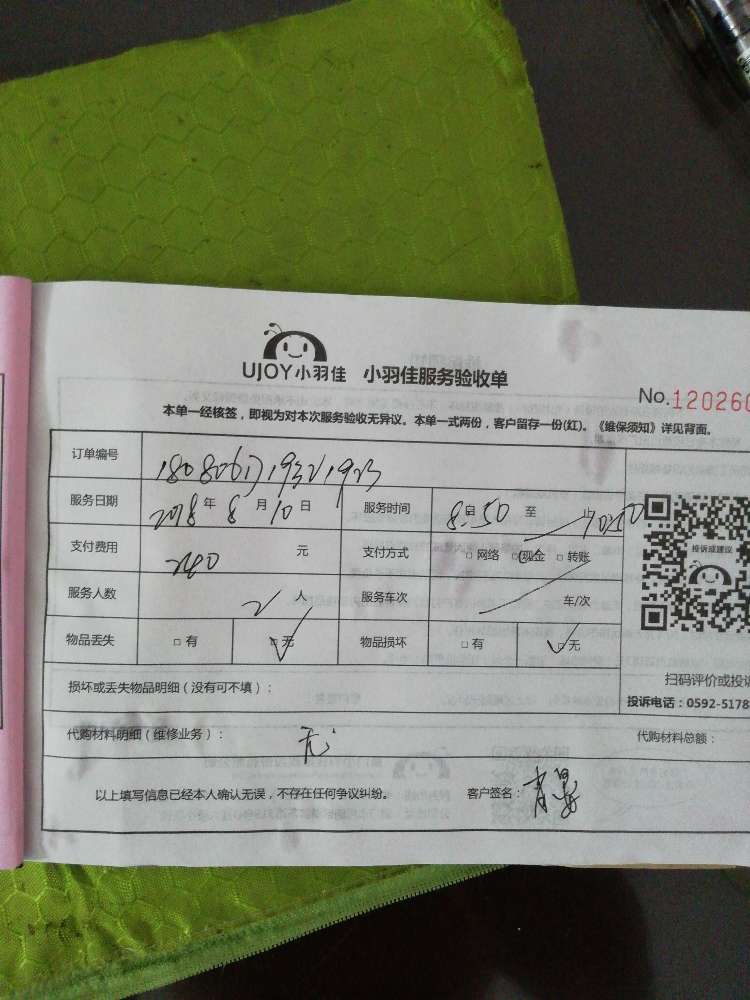 UJOY小羽佳 小羽佳服务验收单
No.120260
本单一经核签，即视为对本次服务验收无异议。本单一式两份，客户留存一份(红)。《维保须知》详见背面。
订单编号
服务日期 2018年 8月10日 服务时间 8:50 至 10:50
支付费用 240 元 支付方式 □ 网络 □ 现金 □ 转账
服务人数 2 人 服务车次 车/次
物品丢失 □ 有 □ 无 物品损坏 □ 有 □ 无
投诉或建议
扫码评价或投诉
投诉电话：0592-5178
损坏或丢失物品明细（没有可不填）：
代购材料明细（维修业务）： 无 代购材料总额：
以上填写信息已经本人确认无误，不存在任何争议纠纷。 客户签名：